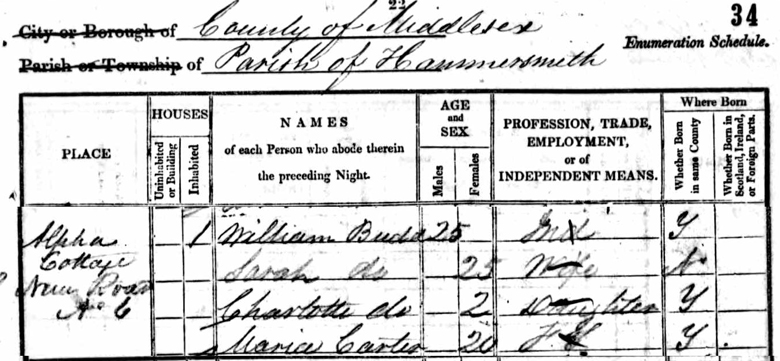 22
34
City or Borough of County of Middlesex
Enumeration Schedule.
Parish or Township of Parish of Hammersmith
PLACE
HOUSES
Uninhabited or Building
Inhabited
NAMES
of each Person who abode therein
the preceding Night.
AGE
and
SEX
Males
Females
PROFESSION, TRADE,
EMPLOYMENT,
or of
INDEPENDENT MEANS.
Where Born
Whether Born in same County
Whether Born in Scotland, Ireland, or Foreign Parts.
Alpha 1 William Budd 25 Y
Cottage Sarah do 25 Wife N
New Road Charlotte do 2 Daughter Y
No 6 Maria Carter 20 Y